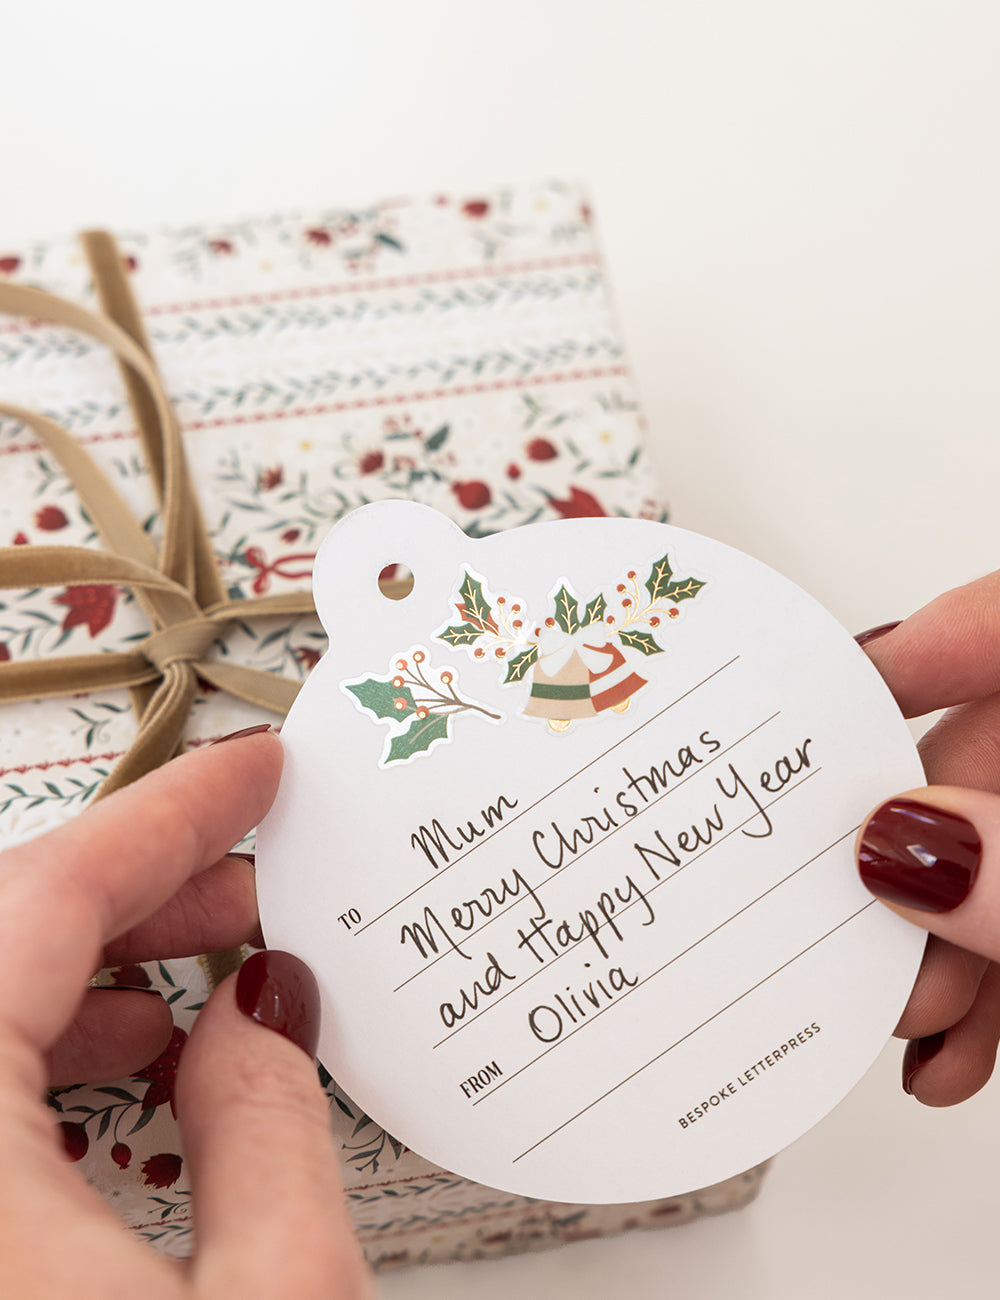 TO Mum
Merry Christmas
and Happy New Year
FROM Olivia
BESPOKE LETTERPRESS